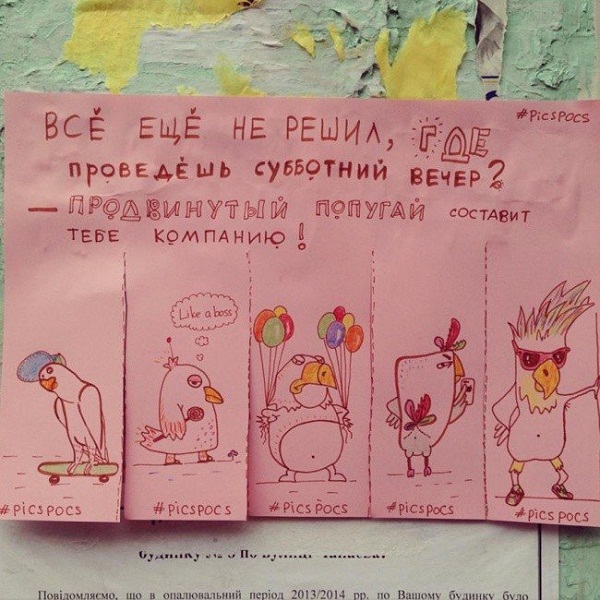 #PICSPOCS
ВСЁ ЕЩЁ НЕ РЕШИЛ, ГДЕ
ПРОВЕДЁШЬ СУББОТНИЙ ВЕЧЕР?
— ПРОДВИНУТЫЙ ПОПУГАЙ СОСТАВИТ
ТЕБЕ КОМПАНИЮ!
Like a boss
#PICSPOCS #PICSPOCS #PICSPOCS #PICSPOCS #PICSPOCS
Повідомляємо, що в опалювальний період 2013/2014 рр. по Вашому будинку було